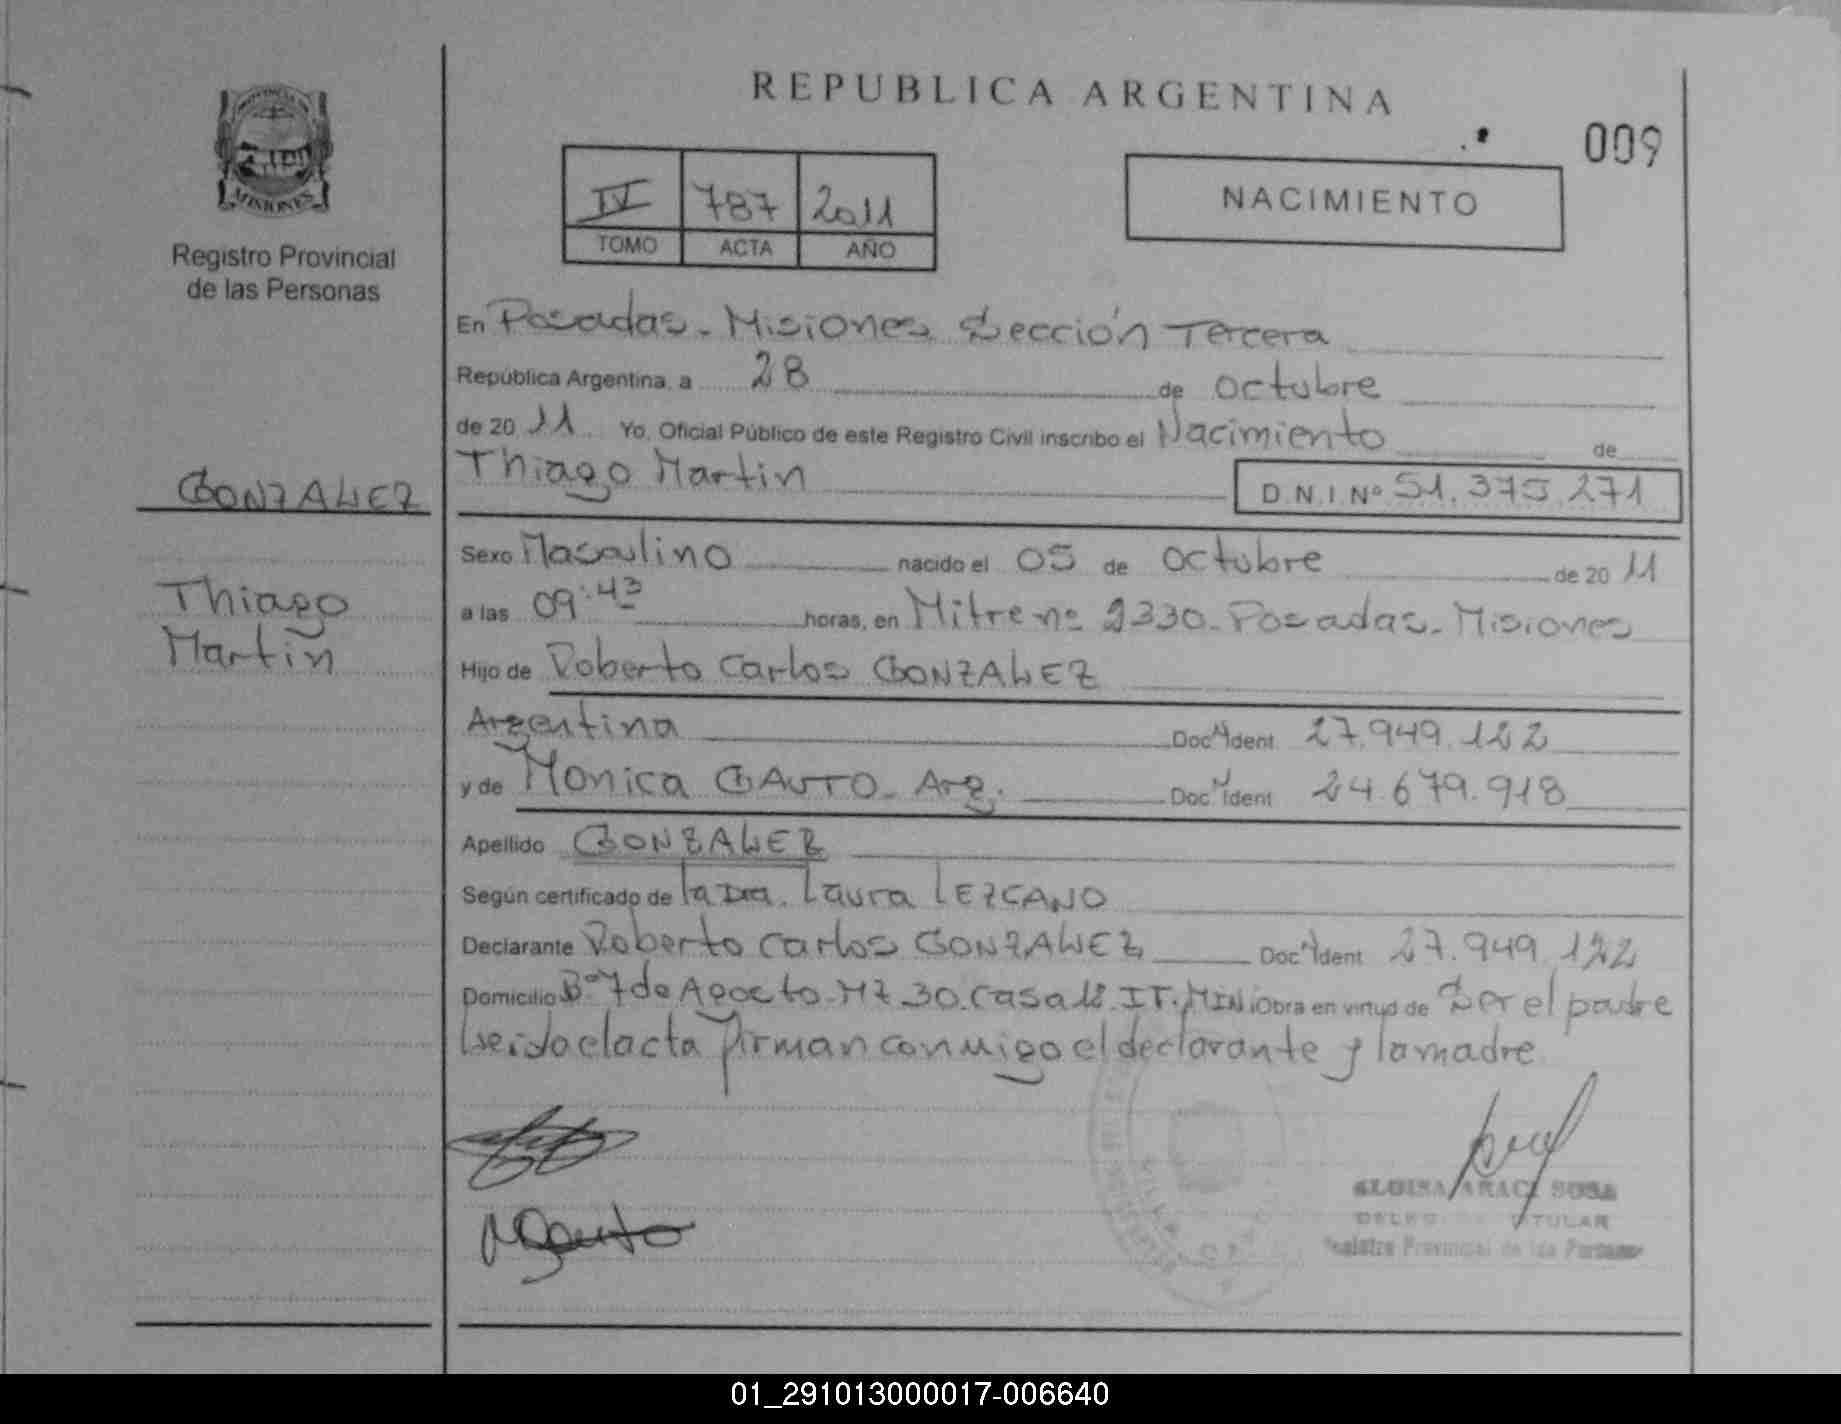 REPUBLICA ARGENTINA
009
PROVINCIA DE
MISIONES
Registro Provincial
de las Personas
IV 787 2011
TOMO ACTA AÑO
NACIMIENTO
En Posadas - Misiones Sección Tercera
República Argentina, a 28 de octubre
de 20 11 Yo, Oficial Público de este Registro Civil inscribo el Nacimiento de
Thiago Martin D.N.I. Nº 51.375.271
GONZALEZ
Thiago
Martin
Sexo Masculino nacido el 05 de octubre de 20 11
a las 09:43 horas, en Mitre nº 2330 - Posadas - Misiones
Hijo de Roberto Carlos GONZALEZ
Argentina Doc. Ident 27.949.122
y de Monica GAUTO - Arg. Doc. Ident 24.679.918
Apellido GONZALEZ
Según certificado de la Dra. Laura LEZCANO
Declarante Roberto Carlos GONZALEZ Doc. Ident 27.949.122
Domicilio Bº 7 de Agosto - Mz 30. Casa 12. IT. MIN. Obra en virtud de Ser el padre
Leida el acta firman conmigo el declarante y la madre
MGauto
ELOISA ARACI SOSA
TITULAR
Registro Provincial de las Personas
01_291013000017-006640